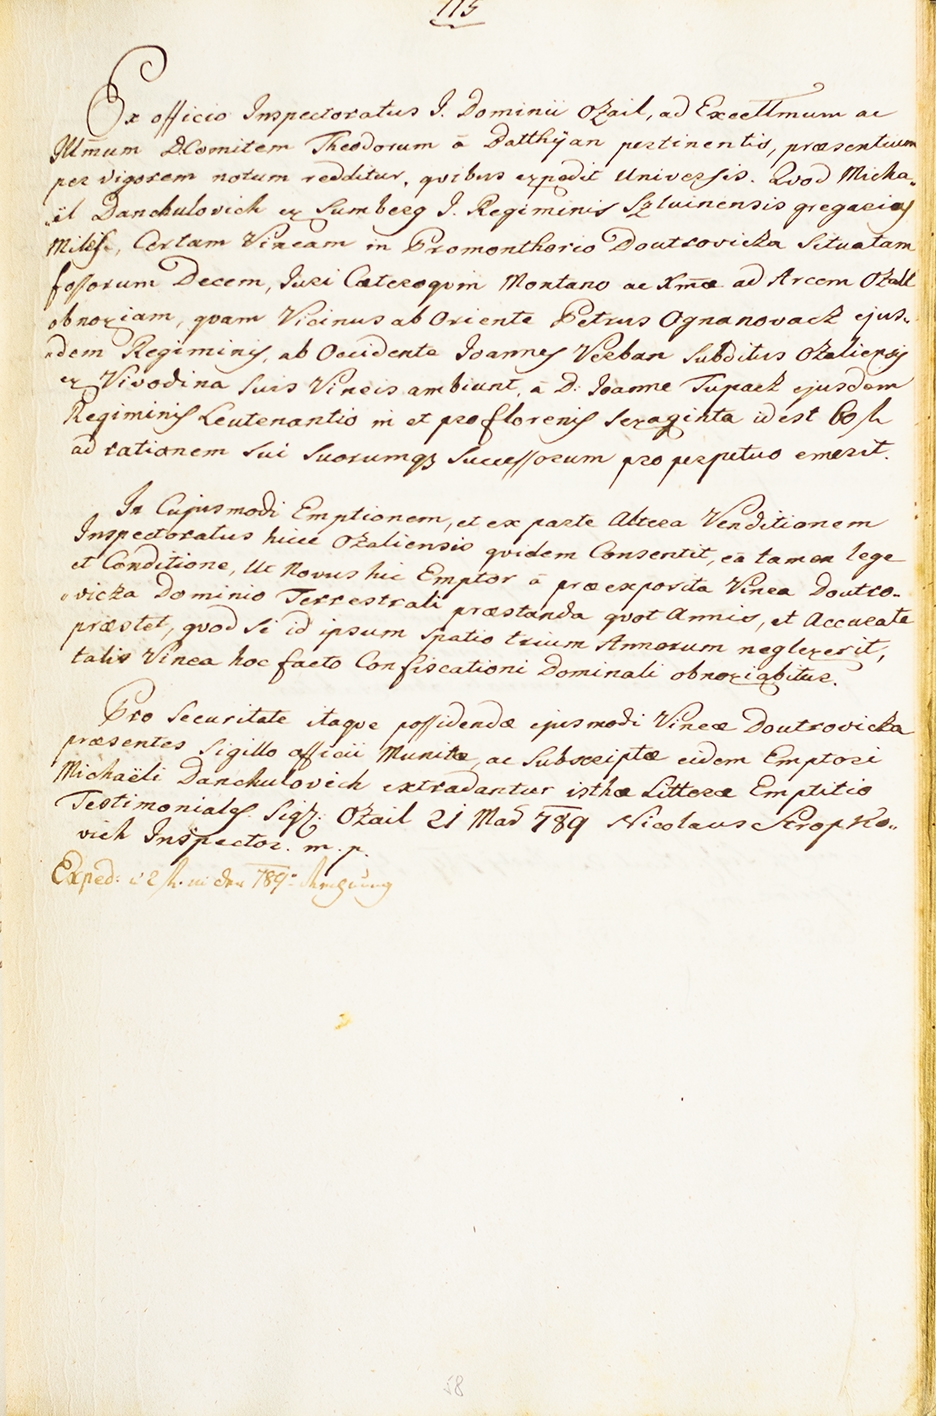 115
Ex officio Inspectoratus I. Dominii Ozail, ad Excellmum ac
Illmum D. Comitem Theodorum â Batthÿan pertinentis, præsentium
per vigorem notum redditur, qvibus expedit Universis. Qvod Micha„
„ël Danchulovich ex Sumberg I. Regiminis Szluinensis gregarius
Miles, Certam Vineam in Promonthorio Doutrovicza Situatam
fossorum Decem, Juri Cæteroqvin Montano ac Xmæ ad Arcem Ozail
obnoxiam, qvam Vicinus ab Oriente Petrus Ognanovacz ejus„
„dem Regiminis, ab Occidente Joannes Verban Subditus Ozaliensis
ex Vivodina Suis Vineis ambiunt, â D: Joanne Tupacz ejusdem
Regiminis Leutenantio in et pro florenis Sexaginta id est 60 f
ad rationem Sui Suorumqz Successorum pro perpetuo emerit.
In Cujusmodi Emptionem, et ex parte Altera Venditionem
Inspectoratus hicce Ozaliensis qvidem Consentit, eâ tamen lege
et Conditione, Ut Novus hic Emptor â præexposita Vinea Doutro„
„vicza Dominio Terrestrali præstanda qvot Annis, et Accurate
præstet, qvod Si id ipsum Spatio trium Annorum neglexerit,
talis Vinea hoc facto Confiscationi Dominali obnoxiabitur.
Pro Securitate itaqve possidendæ ejusmodi Vineæ Doutrovicza
præsentes Sigillo officii Munitæ, ac Subscriptæ eidem Emptori
Michaëli Danchulovich extradantur isthæ Litteræ Emptitio
Testimoniales. Sigl: Ozail 21 Maÿ 789 Nicolaus Skropko„
vich Inspector. m. p.
Exped: 789
58